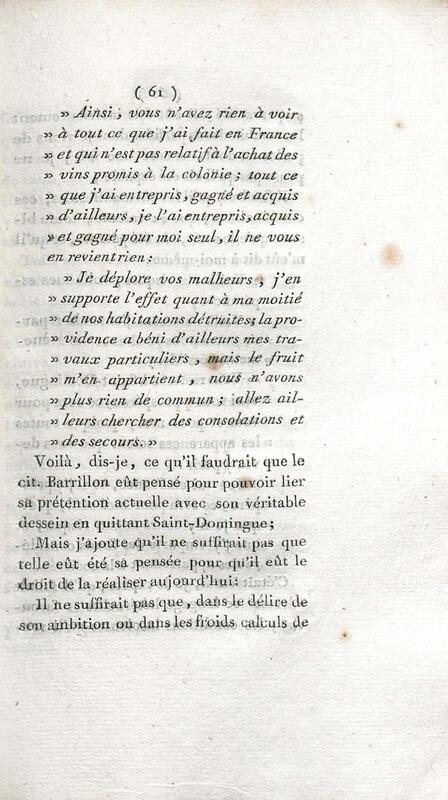 ( 61 )
» Ainsi, vous n'avez rien à voir
» à tout ce que j'ai fait en France
» et qui n'est pas relatif à l'achat des
» vins promis à la colonie; tout ce
» que j'ai entrepris, gagné et acquis
» d'ailleurs, je l'ai entrepris, acquis
» et gagné pour moi seul, il ne vous
en revient rien:
» Je déplore vos malheurs, j'en
» supporte l'effet quant à ma moitié
» de nos habitations détruites; la pro-
» vidence a béni d'ailleurs mes tra-
» vaux particuliers, mais le fruit
» m'en appartient, nous n'avons
» plus rien de commun; allez ail-
» leurs chercher des consolations et
» des secours. »
Voilà, dis-je, ce qu'il faudrait que le
cit. Barrillon eût pensé pour pouvoir lier
sa prétention actuelle avec son véritable
dessein en quittant Saint-Domingue;
Mais j'ajoute qu'il ne suffirait pas que
telle eût été sa pensée pour qu'il eût le
droit de la réaliser aujourd'hui:
Il ne suffirait pas que, dans le délire de
son ambition ou dans les froids calculs de